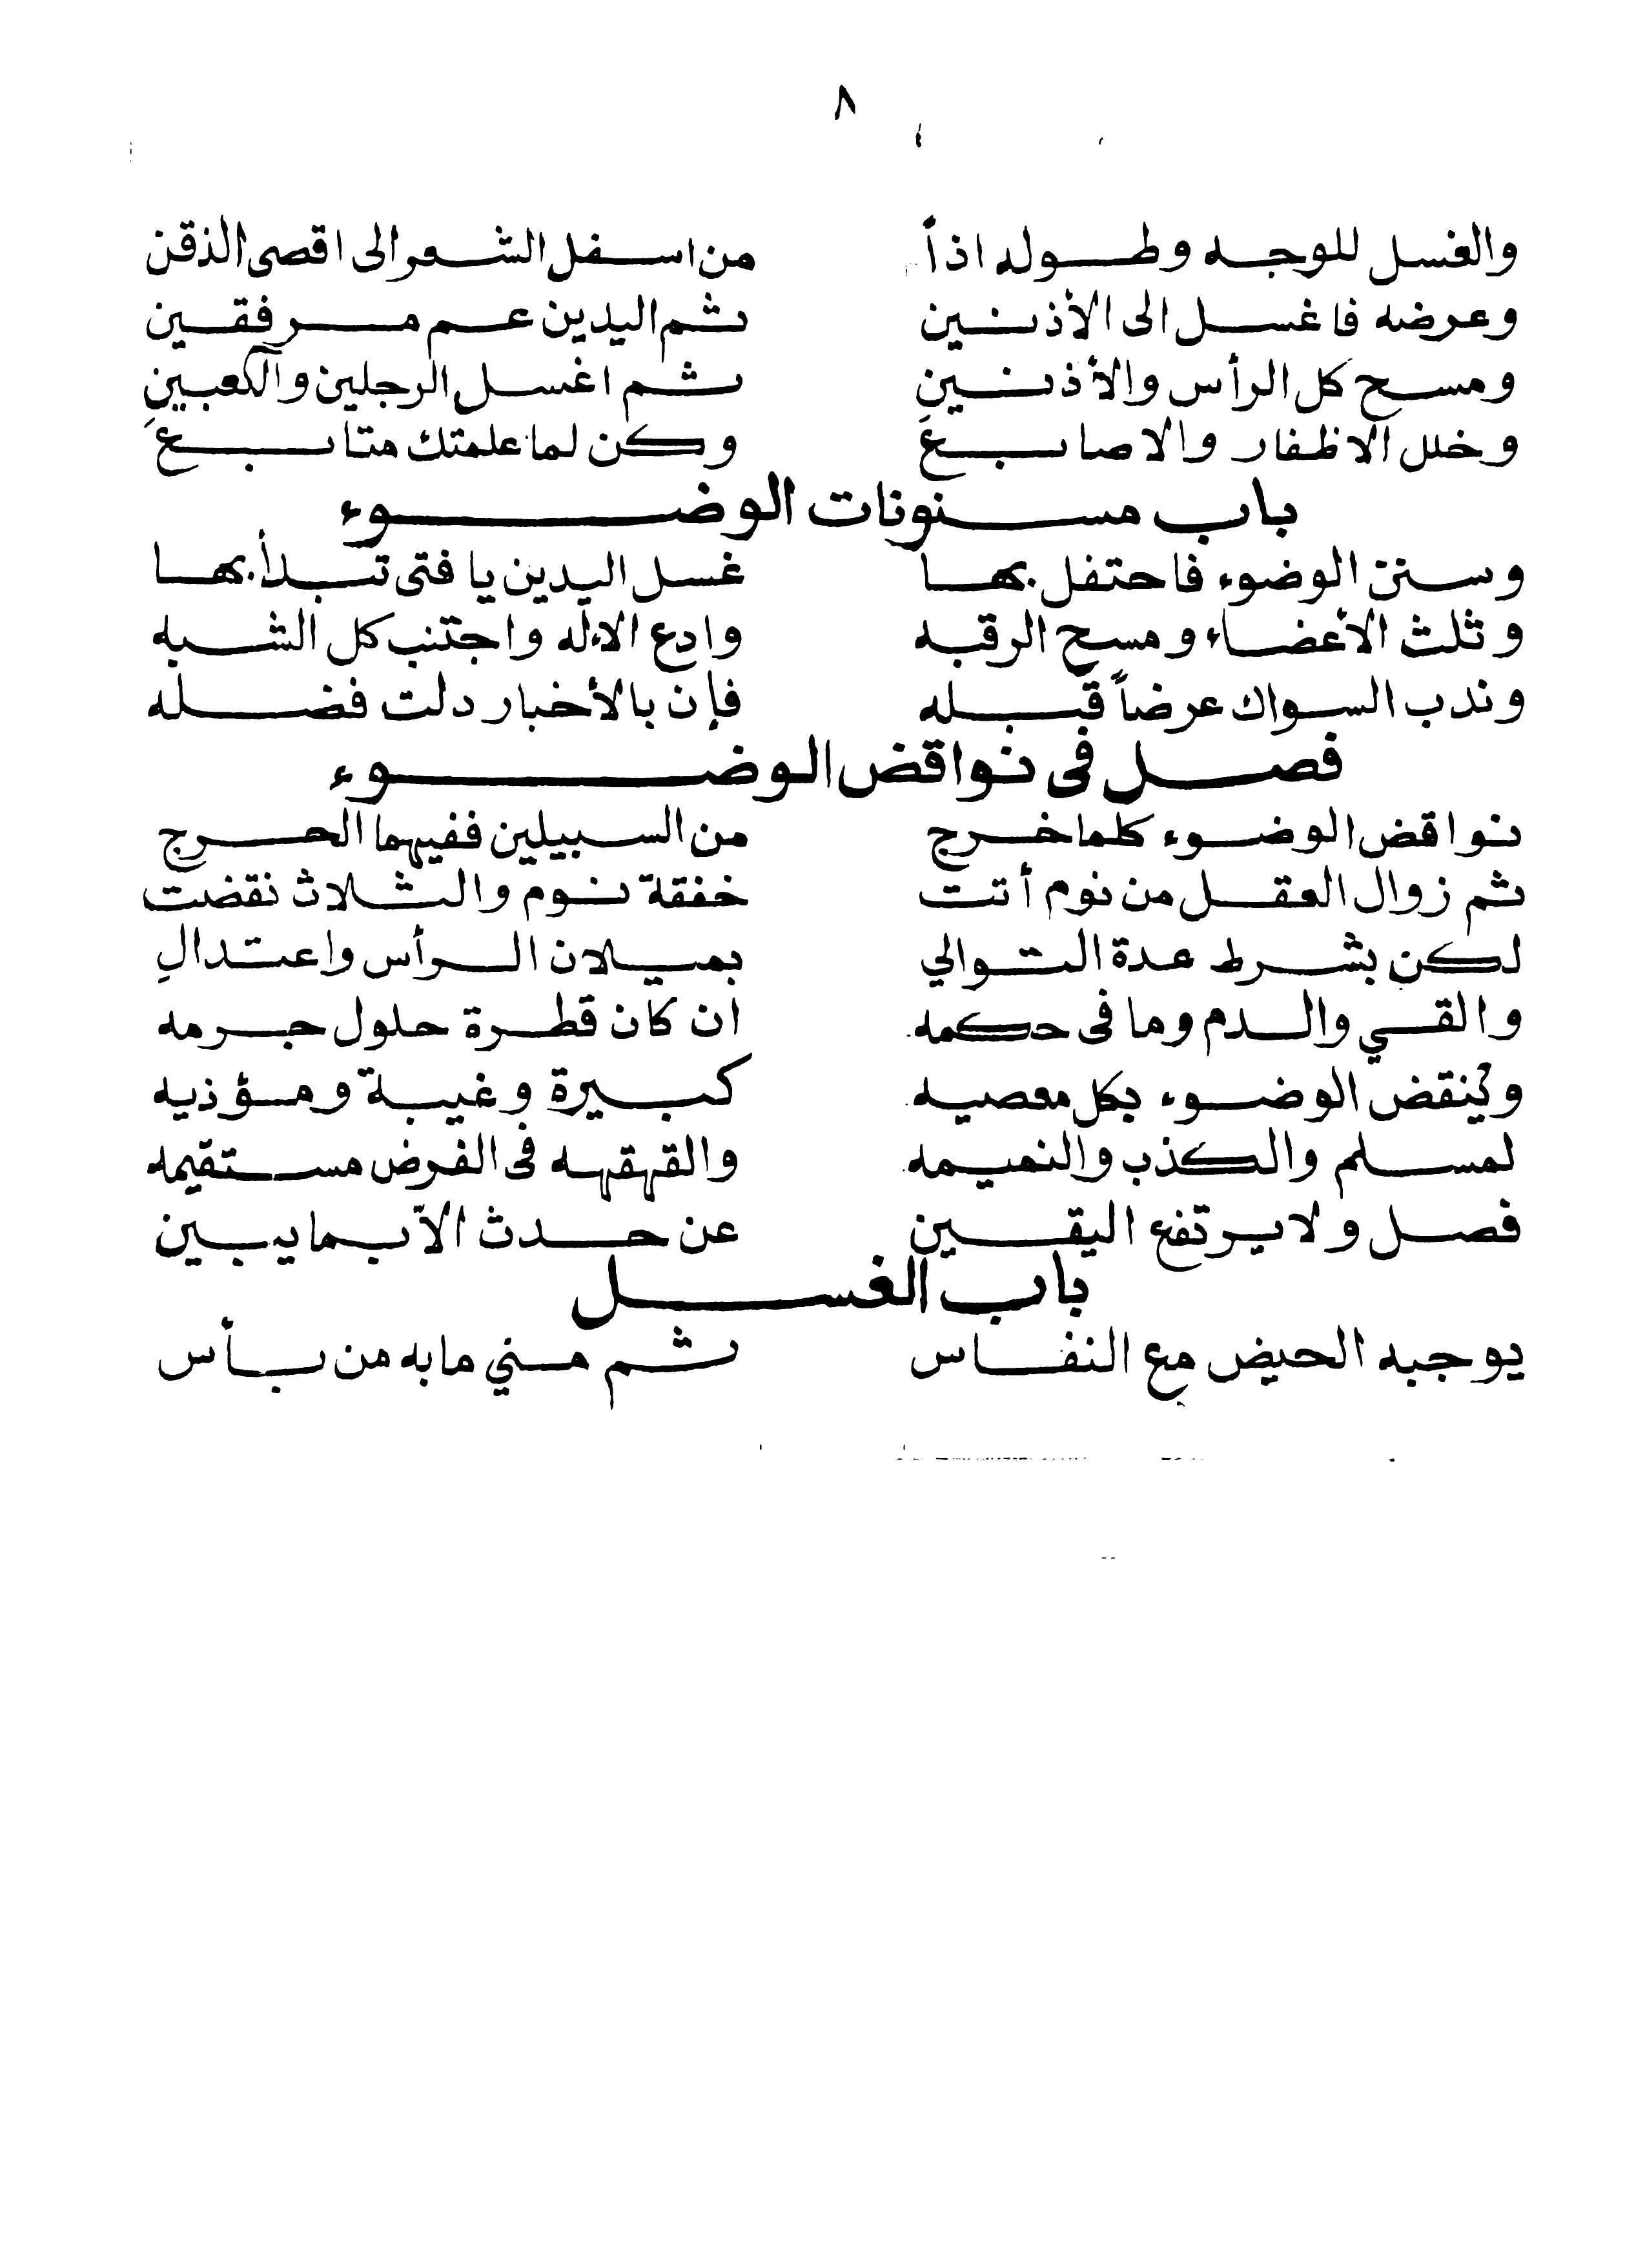 ٨
والغسل للوجه وطوله اذاً من اسفل الشعر الى اقصى الذقن
وعرضه فاغسل الى الأذنين ثم اليدين عم مرفقين
ومسح كل الرأس والأذنين ثم اغسل الرجلين والكعبين
وخلل الاظفار والاصابع وكن لما علمتك متابع
باب مسنونات الوضوء
وسنن الوضوء فاحتفل بها غسل اليدين يا فتى تبدأ بها
وثلث الأعضاء ومسح الرقبه وادع الاله واجتنب كل الشبه
وندب السواك عرضاً قبله فإن بالأخبار دلت فضله
فصل فى نواقض الوضوء
نواقض الوضوء كلما خرج من السبيلين ففيهما الحرج
ثم زوال العقل من نوم أتت خفقة نوم والثلاث نقضت
لكن بشرط عدة التوالي بميلان الرأس واعتدالِ
والقي والدم وما فى حكمه ان كان قطرة حلول جرمه
وينقض الوضوء بكل معصيه كبيرة وغيبة ومؤذيه
لمسلم والكذب والنميمه والقهقهه فى الفرض مستقيمه
فصل ولا يرتفع اليقين عن حدث الا بما يبين
باب الغسل
يوجبه الحيض مع النفاس ثم مني ما به من بأس